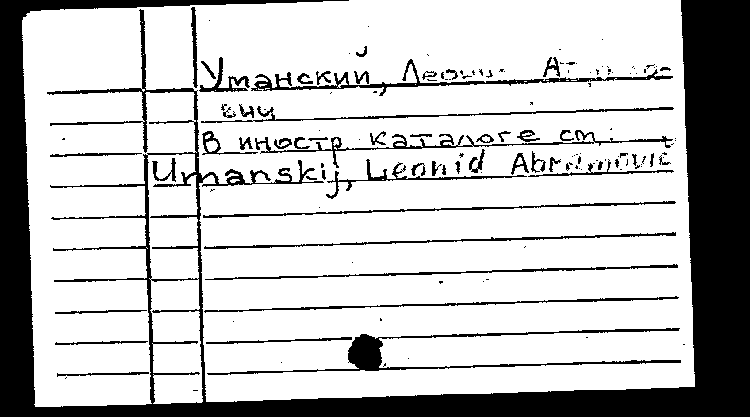 Уманский, Леонид Абрамо-
вич
В иностр каталоге см.:
Umanskij, Leonid Abramovič